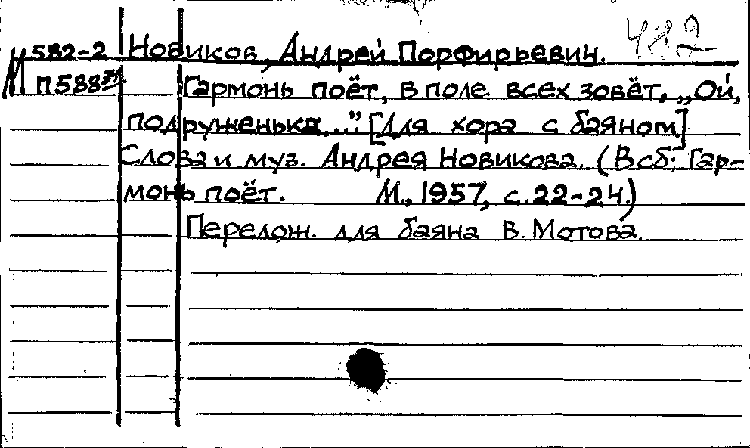 М 582-2 Новиков, Андрей Порфирьевич. 482
П588 Гармонь поёт, в поле всех зовёт. „Ой,
подруженька..." [Для хора с баяном]
Слова и муз. Андрея Новикова. (В сб: Гар-
монь поёт. М., 1957, с.22-24.)
Перелож. для баяна В. Мотова.